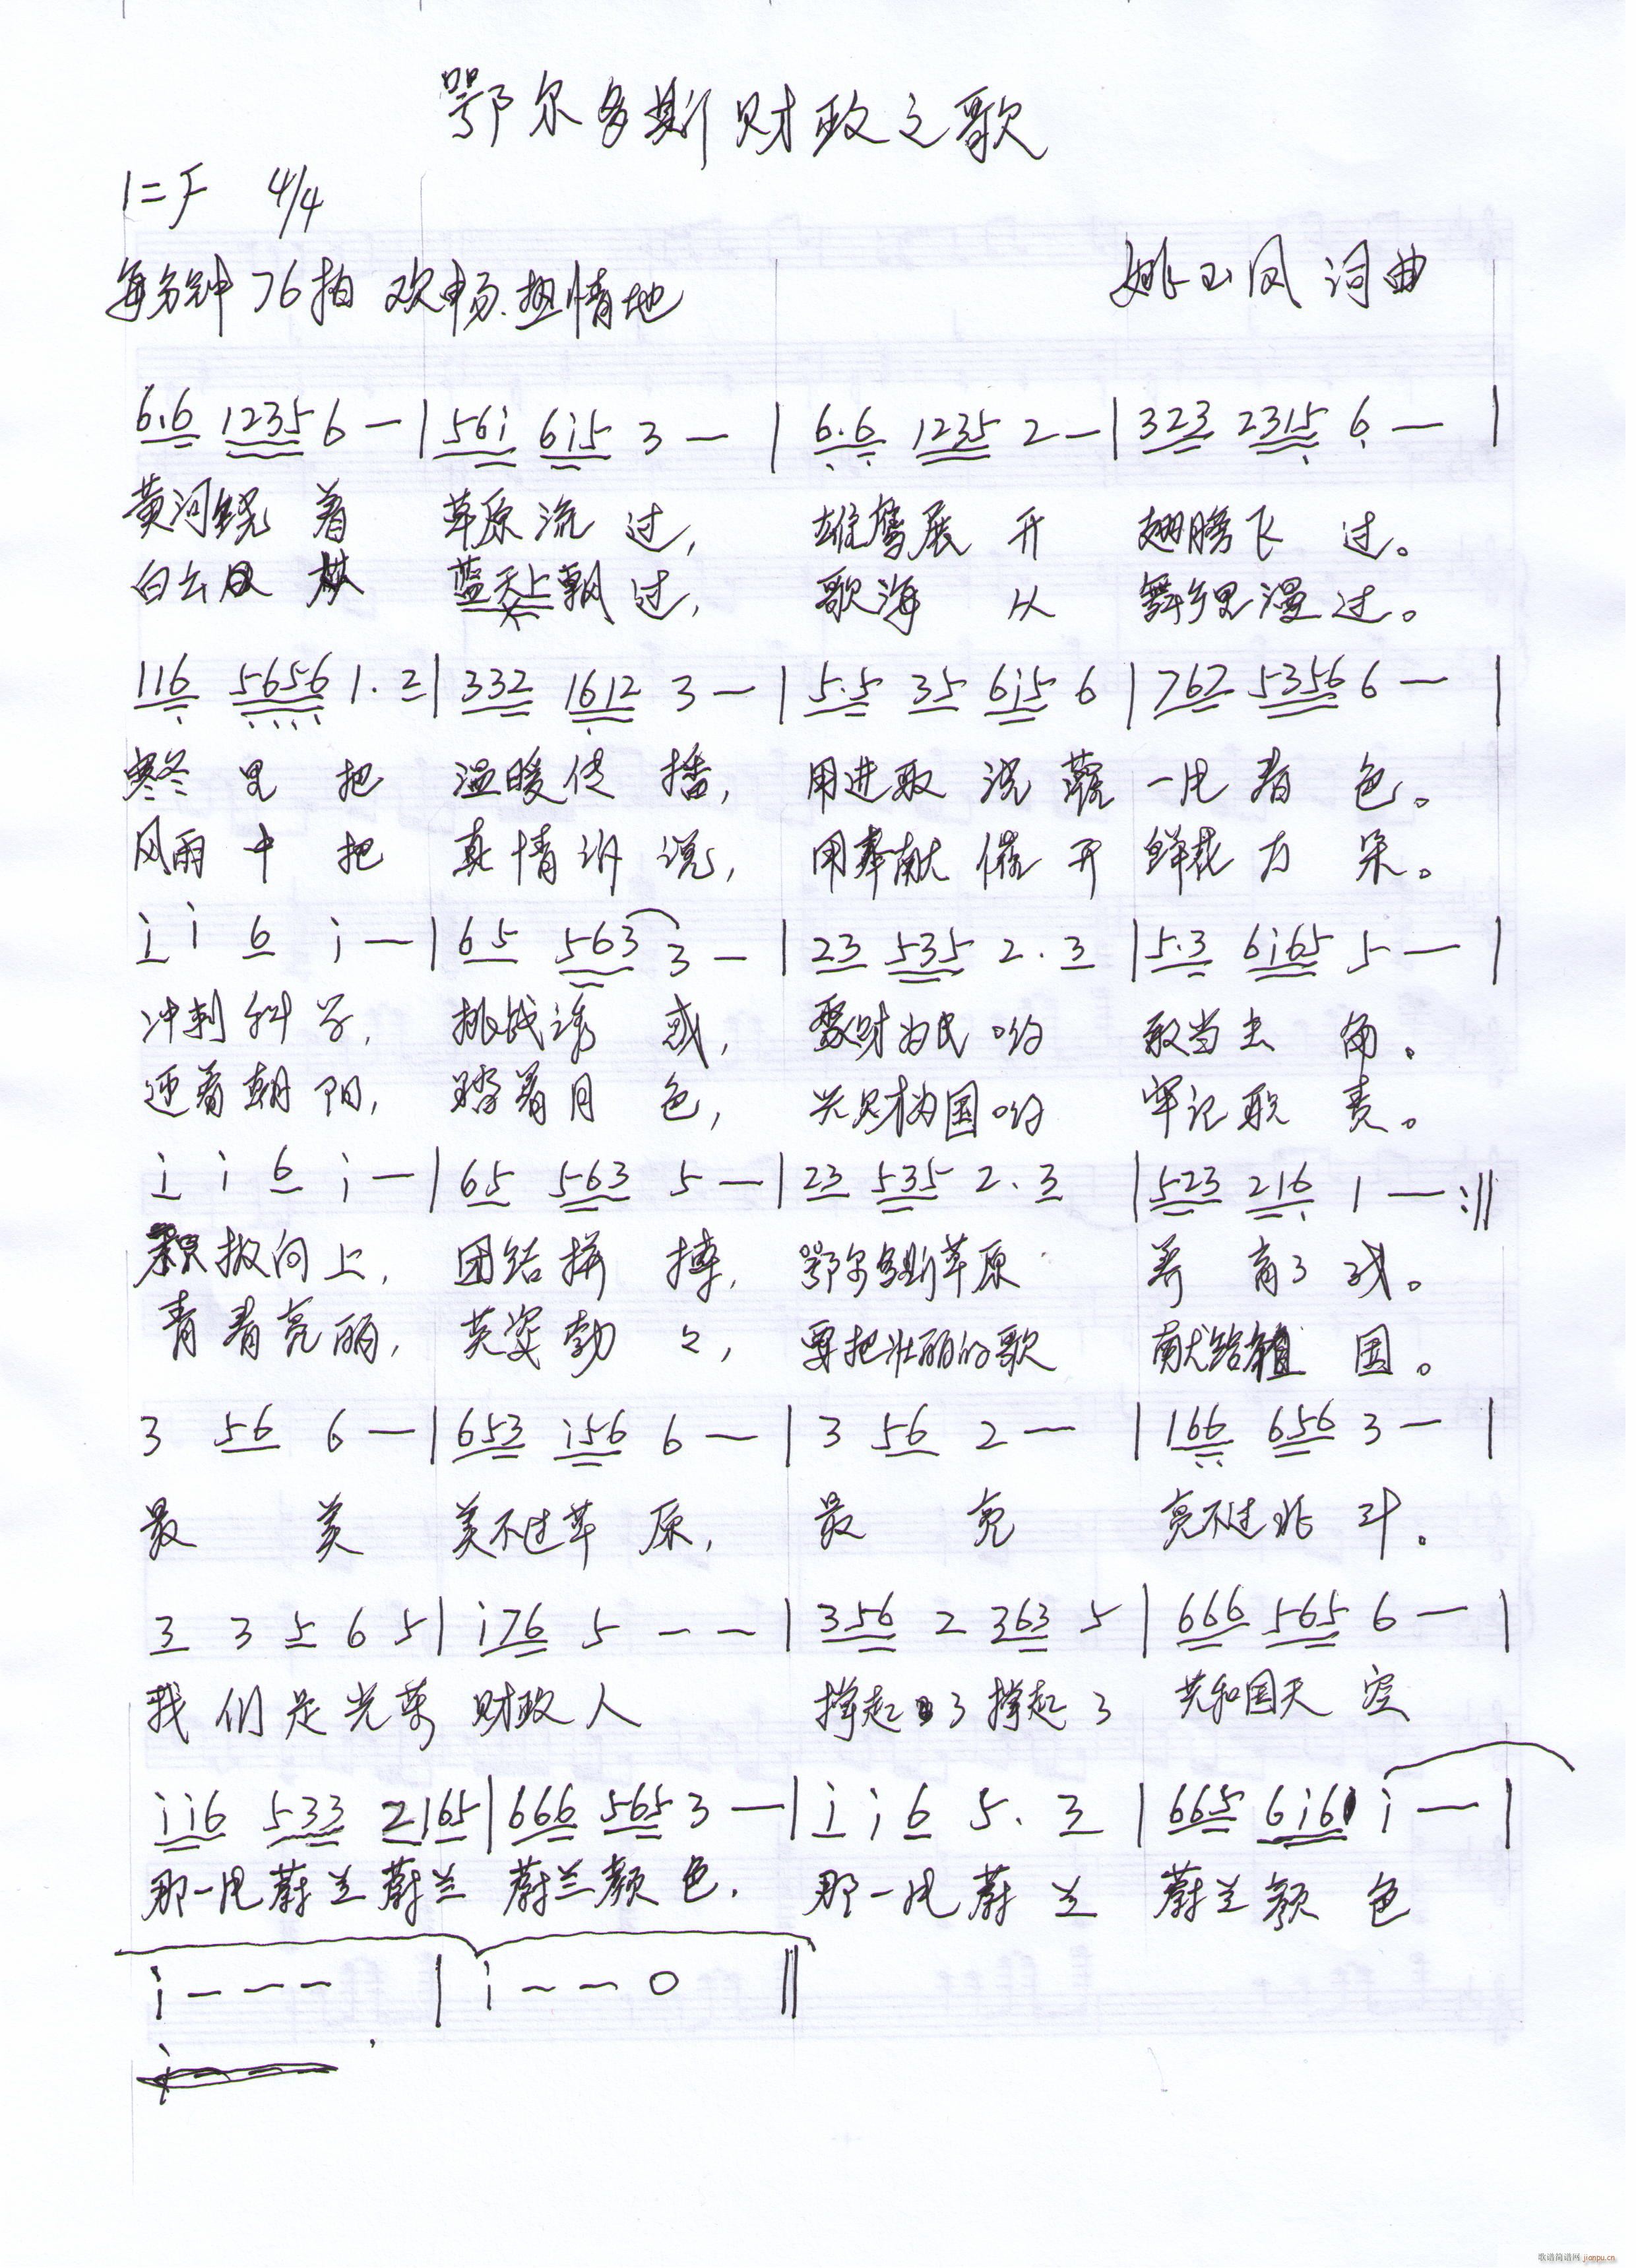 鄂尔多斯财政之歌
1=F 4/4
每分钟76拍 欢畅.热情地 姚玉凤 词曲
6.6 1235 6 — | 56i 6i5 3 — | 6.6 1235 2 — | 323 2315 6 — |
黄河绕着 草原流过, 雄鹰展开 翅膀飞过。
白云从 蓝天上飘过, 歌海从 舞乡里漫过。
116 5656 1.2 | 332 1612 3 — | 5.5 35 6i5 6 | 767 5356 6 — |
寒冬里把 温暖传播, 用进取浇灌 一片春色。
风雨中把 真情诉说, 用奉献催开 鲜花万朵。
i i 6 i — | 65 563 3 — | 23 535 2.3 | 5.3 6i65 5 — |
冲刺科学, 挑战诱惑, 聚财为民哟 敢当主角。
迎着朝阳, 踏着月色, 兴财为国哟 牢记职责。
i i 6 i — | 65 563 5 — | 23 535 2.3 | 523 216 1 — :||
积极向上, 团结拼搏, 鄂尔多斯草原 养育了我。
青春亮丽, 英姿勃々, 要把壮丽的歌 献给祖国。
3 56 6 — | 653 i56 6 — | 3 56 2 — | 166 656 3 — |
最美 美不过草原, 最亮 亮不过北斗。
3 3 5 6 5 | i76 5 — — | 356 2 363 5 | 666 565 6 — |
我们是光荣 财政人 撑起了撑起了 共和国天空
ii6 533 2165 | 666 565 3 — | i i 6 5. 3 | 665 6i6 i — |
那一片蔚兰蔚兰 蔚兰颜色. 那一片蔚兰 蔚兰颜色
i — — — | i — — 0 ||
歌谱简谱网 jianpu.cn